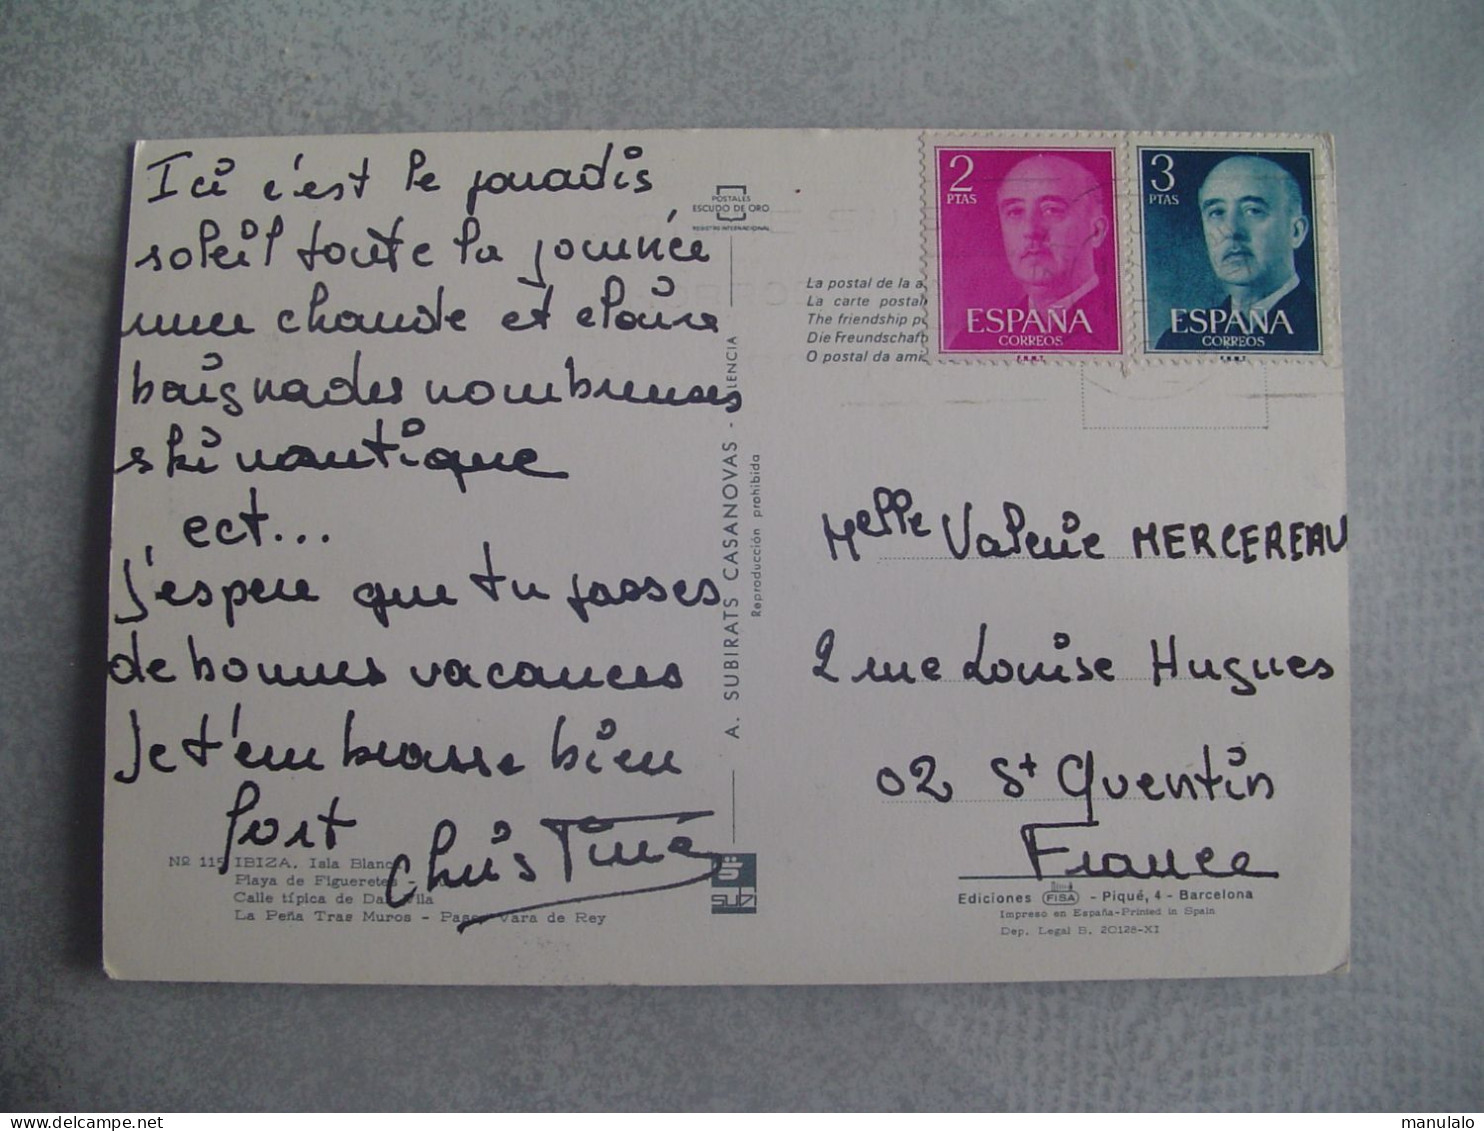 Ici c'est le paradis
soleil toute la journée
mer chaude et claire
baignades nombreuses
ski nautique
ect...
j'espere que tu passes
de bonnes vacances
Je t'embrasse bien
fort Christine
Nº 115 IBIZA. Isla Blanca
Playa de Figueretes -
Calle típica de Dalt Vila
La Peña Tras Muros - Paseo Vara de Rey
POSTALES
ESCUDO DE ORO
REGISTRO INTERNACIONAL
A. SUBIRATS CASANOVAS - VALENCIA
Reproducción prohibida
subi
La postal de la a
La carte postal
The friendship po
Die Freundschaft
O postal da ami
2
PTAS
ESPAÑA
CORREOS
F.N.M.T.
3
PTAS
ESPAÑA
CORREOS
F.N.M.T.
Melle Valerie MERCEREAU
2 rue Louise Hugues
02 St Quentin
France
Ediciones FISA - Piqué, 4 - Barcelona
Impreso en España-Printed in Spain
Dep. Legal B. 20128-XI
manulalo
www.delcampe.net